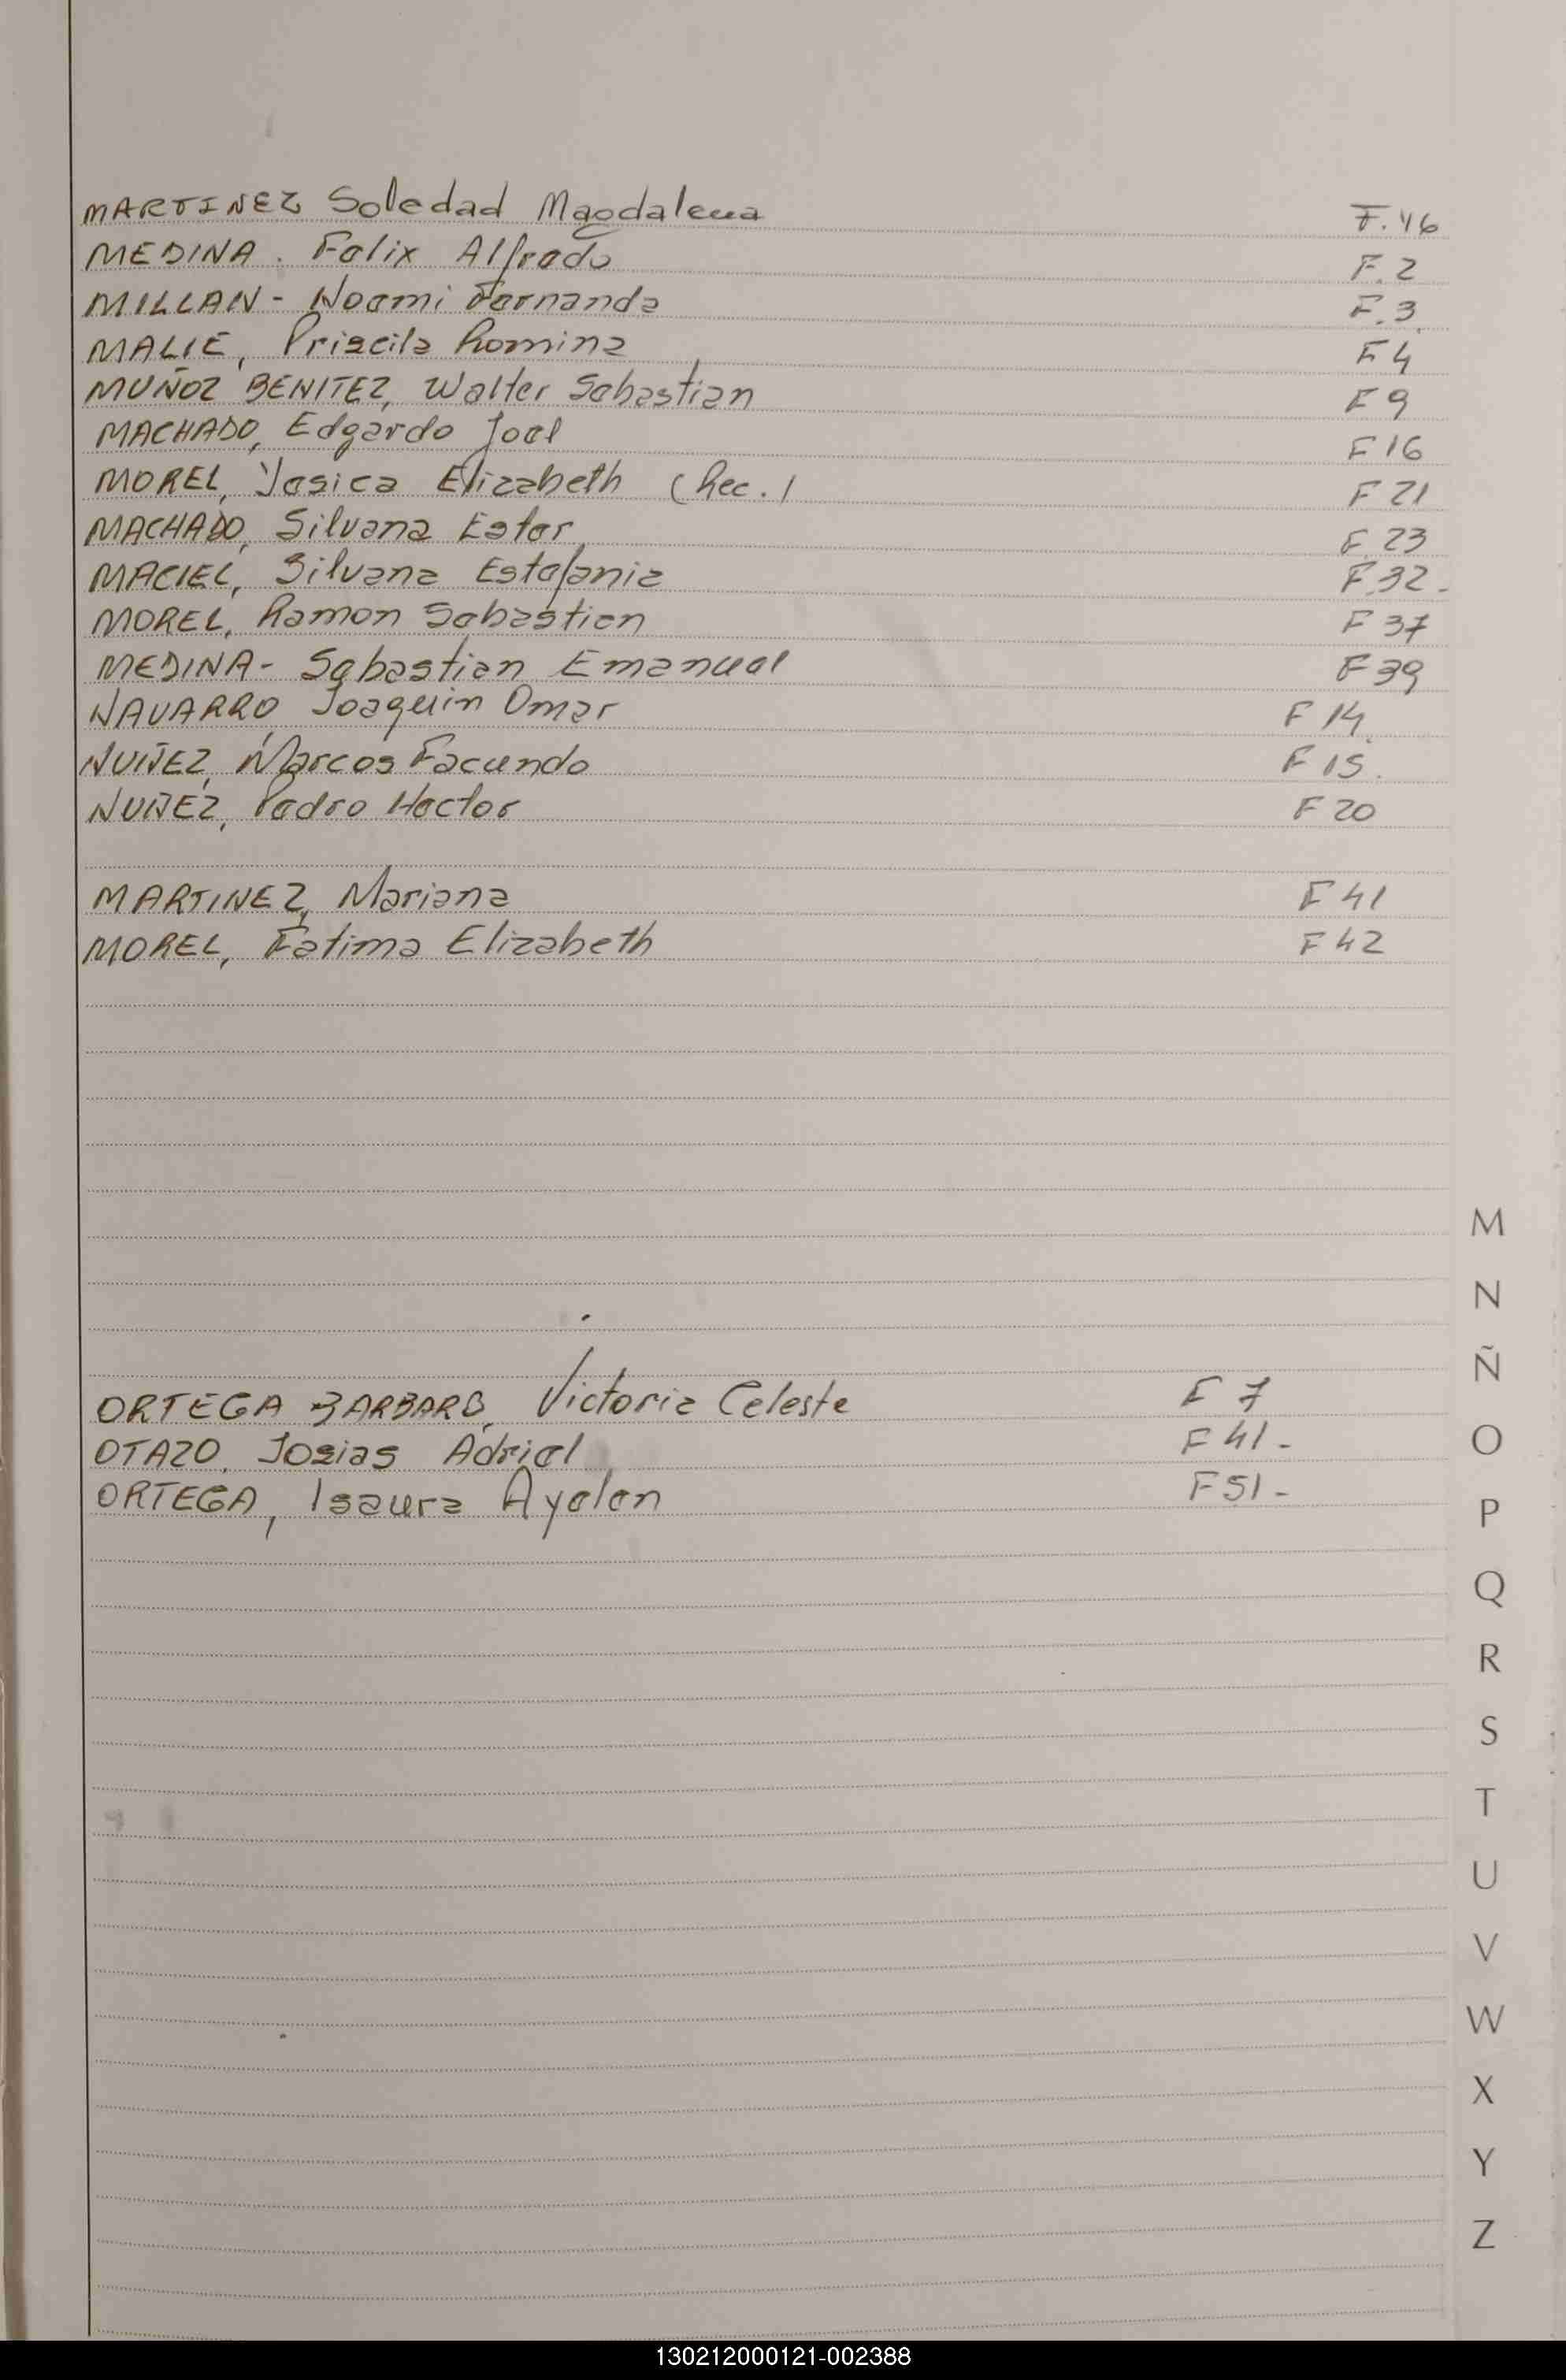 MARTINEZ Soledad Magdalena F.46
MEDINA. Felix Alfredo F.2
MILLAN - Noemi Fernanda F.3
MALIE, Priscila Romina F4
MUÑOZ BENITEZ, Walter Sebastian F9
MACHADO, Edgardo Joel F16
MOREL, Yesica Elizabeth (Rec.) F21
MACHADO, Silvana Ester F.23
MACIEL, Silvana Estefania F.32-
MOREL, Ramon Sebastian F37
MEDINA- Sebastian Emanuel F39
NAVARRO, Joaquin Omar F14
NUÑEZ, Marcos Facundo F15.
NUÑEZ, Pedro Hector F20
MARTINEZ, Mariana F41
MOREL, Fatima Elizabeth F42
M
N
Ñ
ORTEGA BARBARO, Victoria Celeste F7
OTAZO, Josias Adriel F41-
O
ORTEGA, Isaura Ayelen F51-
P
Q
R
S
T
U
V
W
X
Y
Z
130212000121-002388